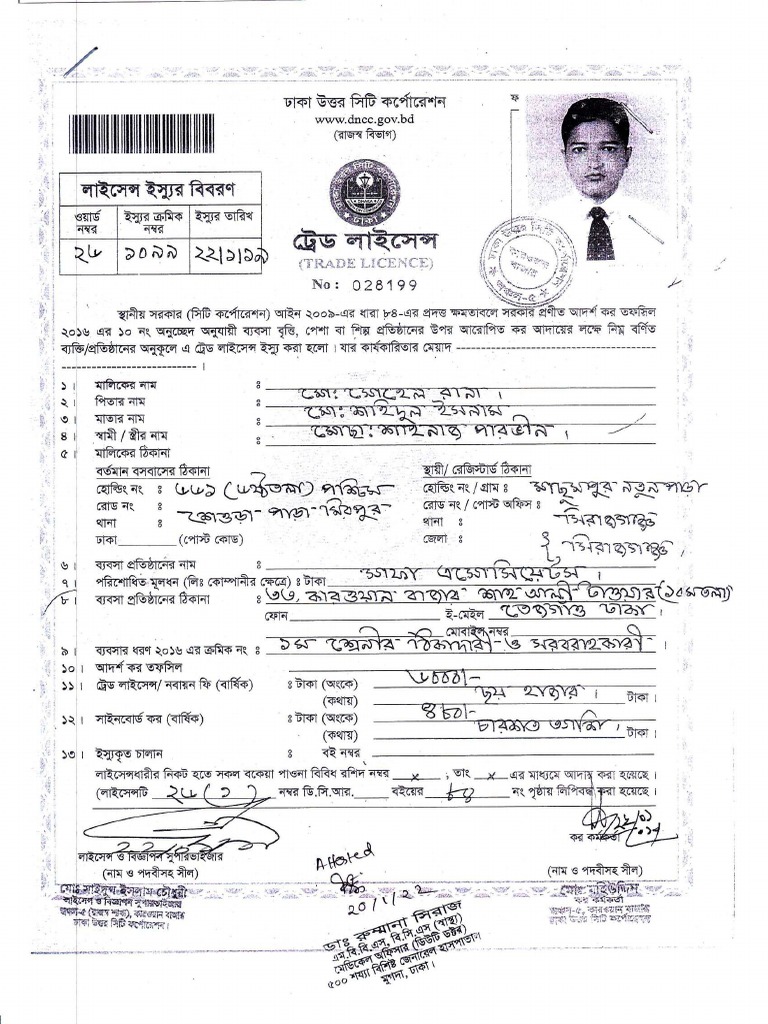 ঢাকা উত্তর সিটি কর্পোরেশন
www.dncc.gov.bd
(রাজস্ব বিভাগ)
লাইসেন্স ইস্যুর বিবরণ
ওয়ার্ড নম্বর ইস্যুর ক্রমিক নম্বর ইস্যুর তারিখ
২৬ ১০৯৯ ২২/১/১৯
ট্রেড লাইসেন্স
(TRADE LICENCE)
No : 028199
স্থানীয় সরকার (সিটি কর্পোরেশন) আইন ২০০৯-এর ধারা ৮৪-এর প্রদত্ত ক্ষমতাবলে সরকার প্রণীত আদর্শ কর তফসিল
২০১৬ এর ১০ নং অনুচ্ছেদ অনুযায়ী ব্যবসা বৃত্তি, পেশা বা শিল্প প্রতিষ্ঠানের উপর আরোপিত কর আদায়ের লক্ষে নিম্ন বর্ণিত
ব্যক্তি/প্রতিষ্ঠানের অনুকূলে এ ট্রেড লাইসেন্স ইস্যু করা হলো। যার কার্যকারিতার মেয়াদ
১। মালিকের নাম : মো: সোহেল রানা।
২। পিতার নাম : মো: শহিদুল ইসলাম
৩। মাতার নাম : মোছা: শাহনাজ পারভীন।
৪। স্বামী / স্ত্রীর নাম :
৫। মালিকের ঠিকানা
বর্তমান বসবাসের ঠিকানা স্থায়ী/ রেজিস্টার্ড ঠিকানা
হোল্ডিং নং : ৬৬১ (৬ষ্ঠতলা) পশ্চিম হোল্ডিং নং / গ্রাম : মাছুমপুর নতুন পাড়া
রোড নং : শেওড়া পাড়া মিরপুর রোড নং / পোস্ট অফিস : সিরাজগঞ্জ
থানা : থানা :
ঢাকা (পোস্ট কোড) জেলা : সিরাজগঞ্জ।
৬। ব্যবসা প্রতিষ্ঠানের নাম : এসোসিয়েটস।
৭। পরিশোধিত মূলধন (লিঃ কোম্পানীর ক্ষেত্রে) : টাকা
৮। ব্যবসা প্রতিষ্ঠানের ঠিকানা : ৩৩, কারওয়ান বাজার শাহ আলী টাওয়ার (১০মতলা)
ফোন ই-মেইল তেজগাঁও ঢাকা।
মোবাইল নম্বর
৯। ব্যবসার ধরণ ২০১৬ এর ক্রমিক নং : ১ম শ্রেনীর ঠিকাদারী ও সরবরাহকারী
১০। আদর্শ কর তফসিল
১১। ট্রেড লাইসেন্স/ নবায়ন ফি (বার্ষিক) : টাকা (অংকে) ৬০০০/-
(কথায়) ছয় হাজার। টাকা।
১২। সাইনবোর্ড কর (বার্ষিক) : টাকা (অংকে) ৪৮০/-
(কথায়) চারশত আশি। টাকা।
১৩। ইস্যুকৃত চালান : বই নম্বর
লাইসেন্সধারীর নিকট হতে সকল বকেয়া পাওনা বিবিধ রশিদ নম্বর x , তাং x এর মাধ্যমে আদায় করা হয়েছে।
(লাইসেন্সটি ২৬(১) নম্বর ডি.সি.আর. বইয়ের নং পৃষ্ঠায় লিপিবদ্ধ করা হয়েছে।
লাইসেন্স ও বিজ্ঞাপন সুপারভাইজার কর কর্মকর্তা
(নাম ও পদবীসহ সীল) (নাম ও পদবীসহ সীল)
মোঃ সাইদুল ইসলাম চৌধুরী
লাইসেন্স ও বিজ্ঞাপন সুপারভাইজার
অঞ্চল-৫ (রাজস্ব শাখা), কারওয়ান বাজার
ঢাকা উত্তর সিটি কর্পোরেশন।
Attested
20/1/22
ডাঃ রুম্মানা সিরাজ
এম.বি.বি.এস, বি.সি.এস (স্বাস্থ্য)
মেডিকেল অফিসার (ডিউটি ডক্টর)
৫০০ শয্যা বিশিষ্ট জেনারেল হাসপাতাল
মুগদা, ঢাকা।
মোঃ মহিউদ্দিন
কর কর্মকর্তা
অঞ্চল-৫, কারওয়ান বাজার
ঢাকা উত্তর সিটি কর্পোরেশন